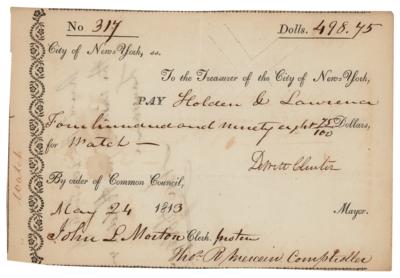 No 317 Dolls. 498.75
City of New-York, ss.
To the Treasurer of the City of New-York,
PAY Holden & Lawrence
Four hundred and ninety eight 75/100 Dollars,
for Watch —
Dewitt Clinton
By order of Common Council,
May 24 1813 Mayor.
John L Morton Clerk.
Tho. R Mercein Comptroller